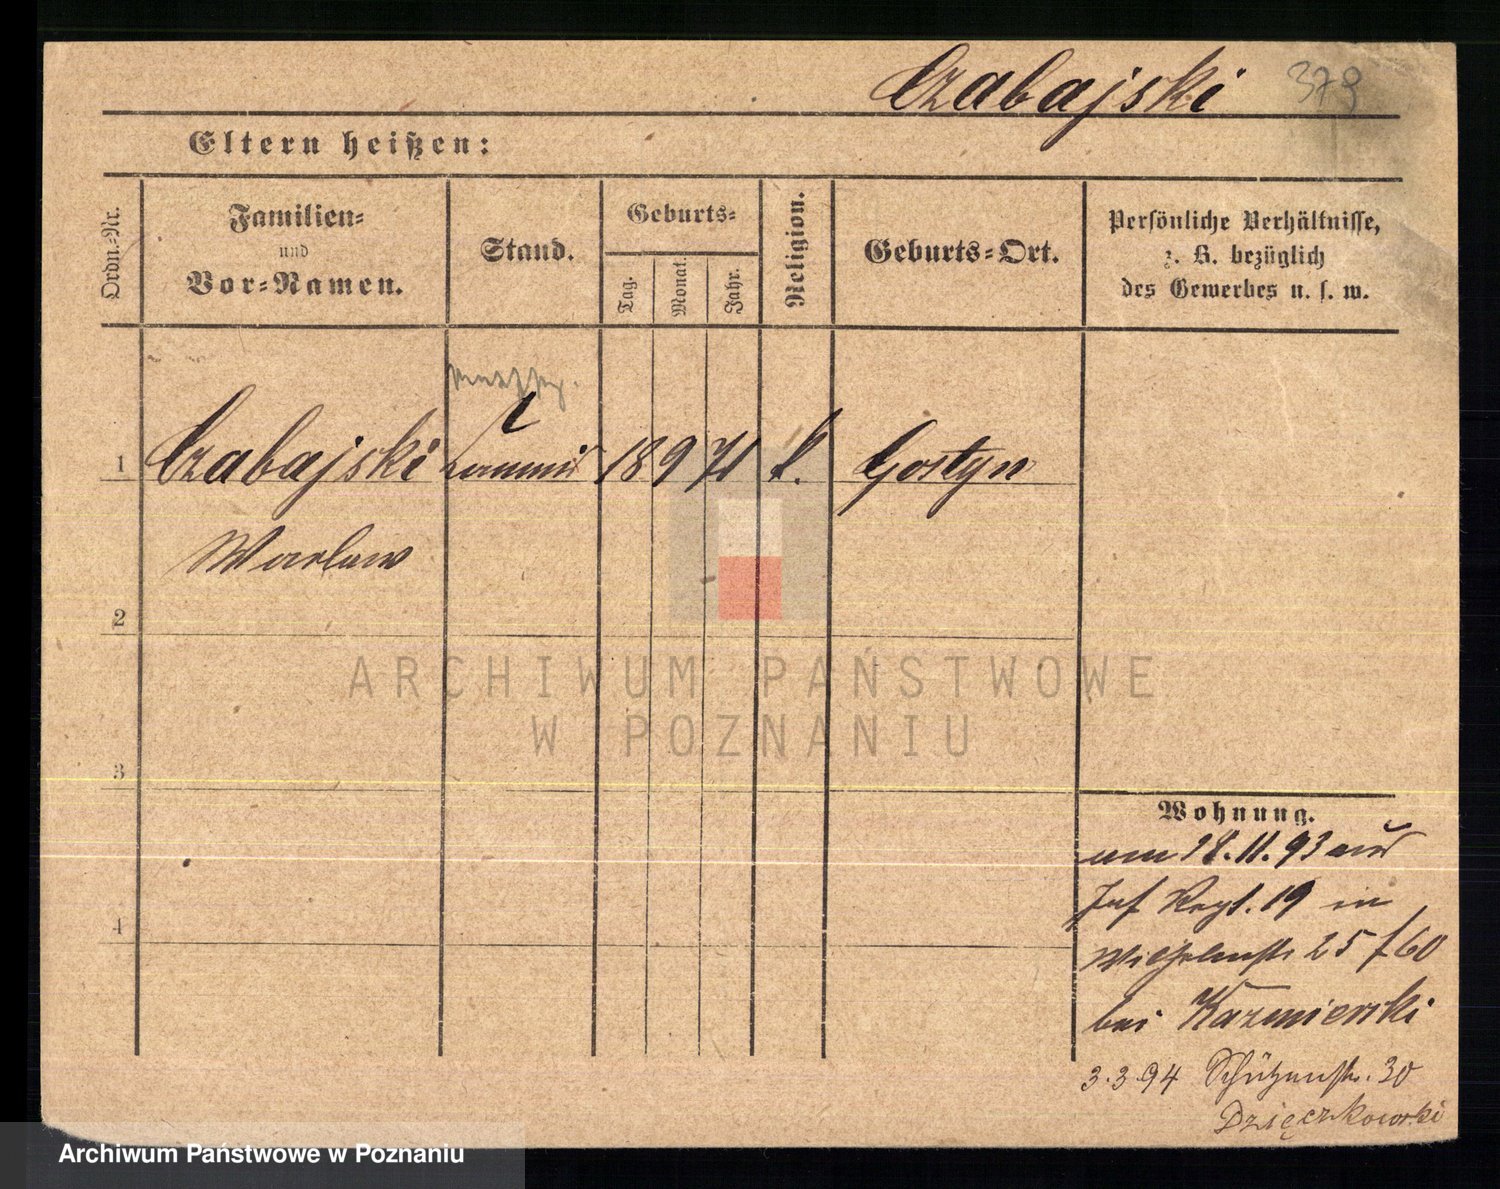 Czabajski 379
Eltern heißen:
Ordn.-Nr.
Familien-
und
Vor-Namen.
Stand.
Geburts-
Tag.
Monat.
Jahr.
Religion.
Geburts-Ort.
Persönliche Verhältnisse,
z. B. bezüglich
des Gewerbes u. s. w.
1 Czabajski 18 9 71 k. Gostyn
Waclaw
2
ARCHIWUM PAŃSTWOWE
W POZNANIU
3
Wohnung.
am 28.11.93 aus
4
Inf Regt. 19 in
Wilhelmstr 25 f 60
bei Kazmierski
3.3.94 Schützenstr. 30
Dzięczkowski
Archiwum Państwowe w Poznaniu